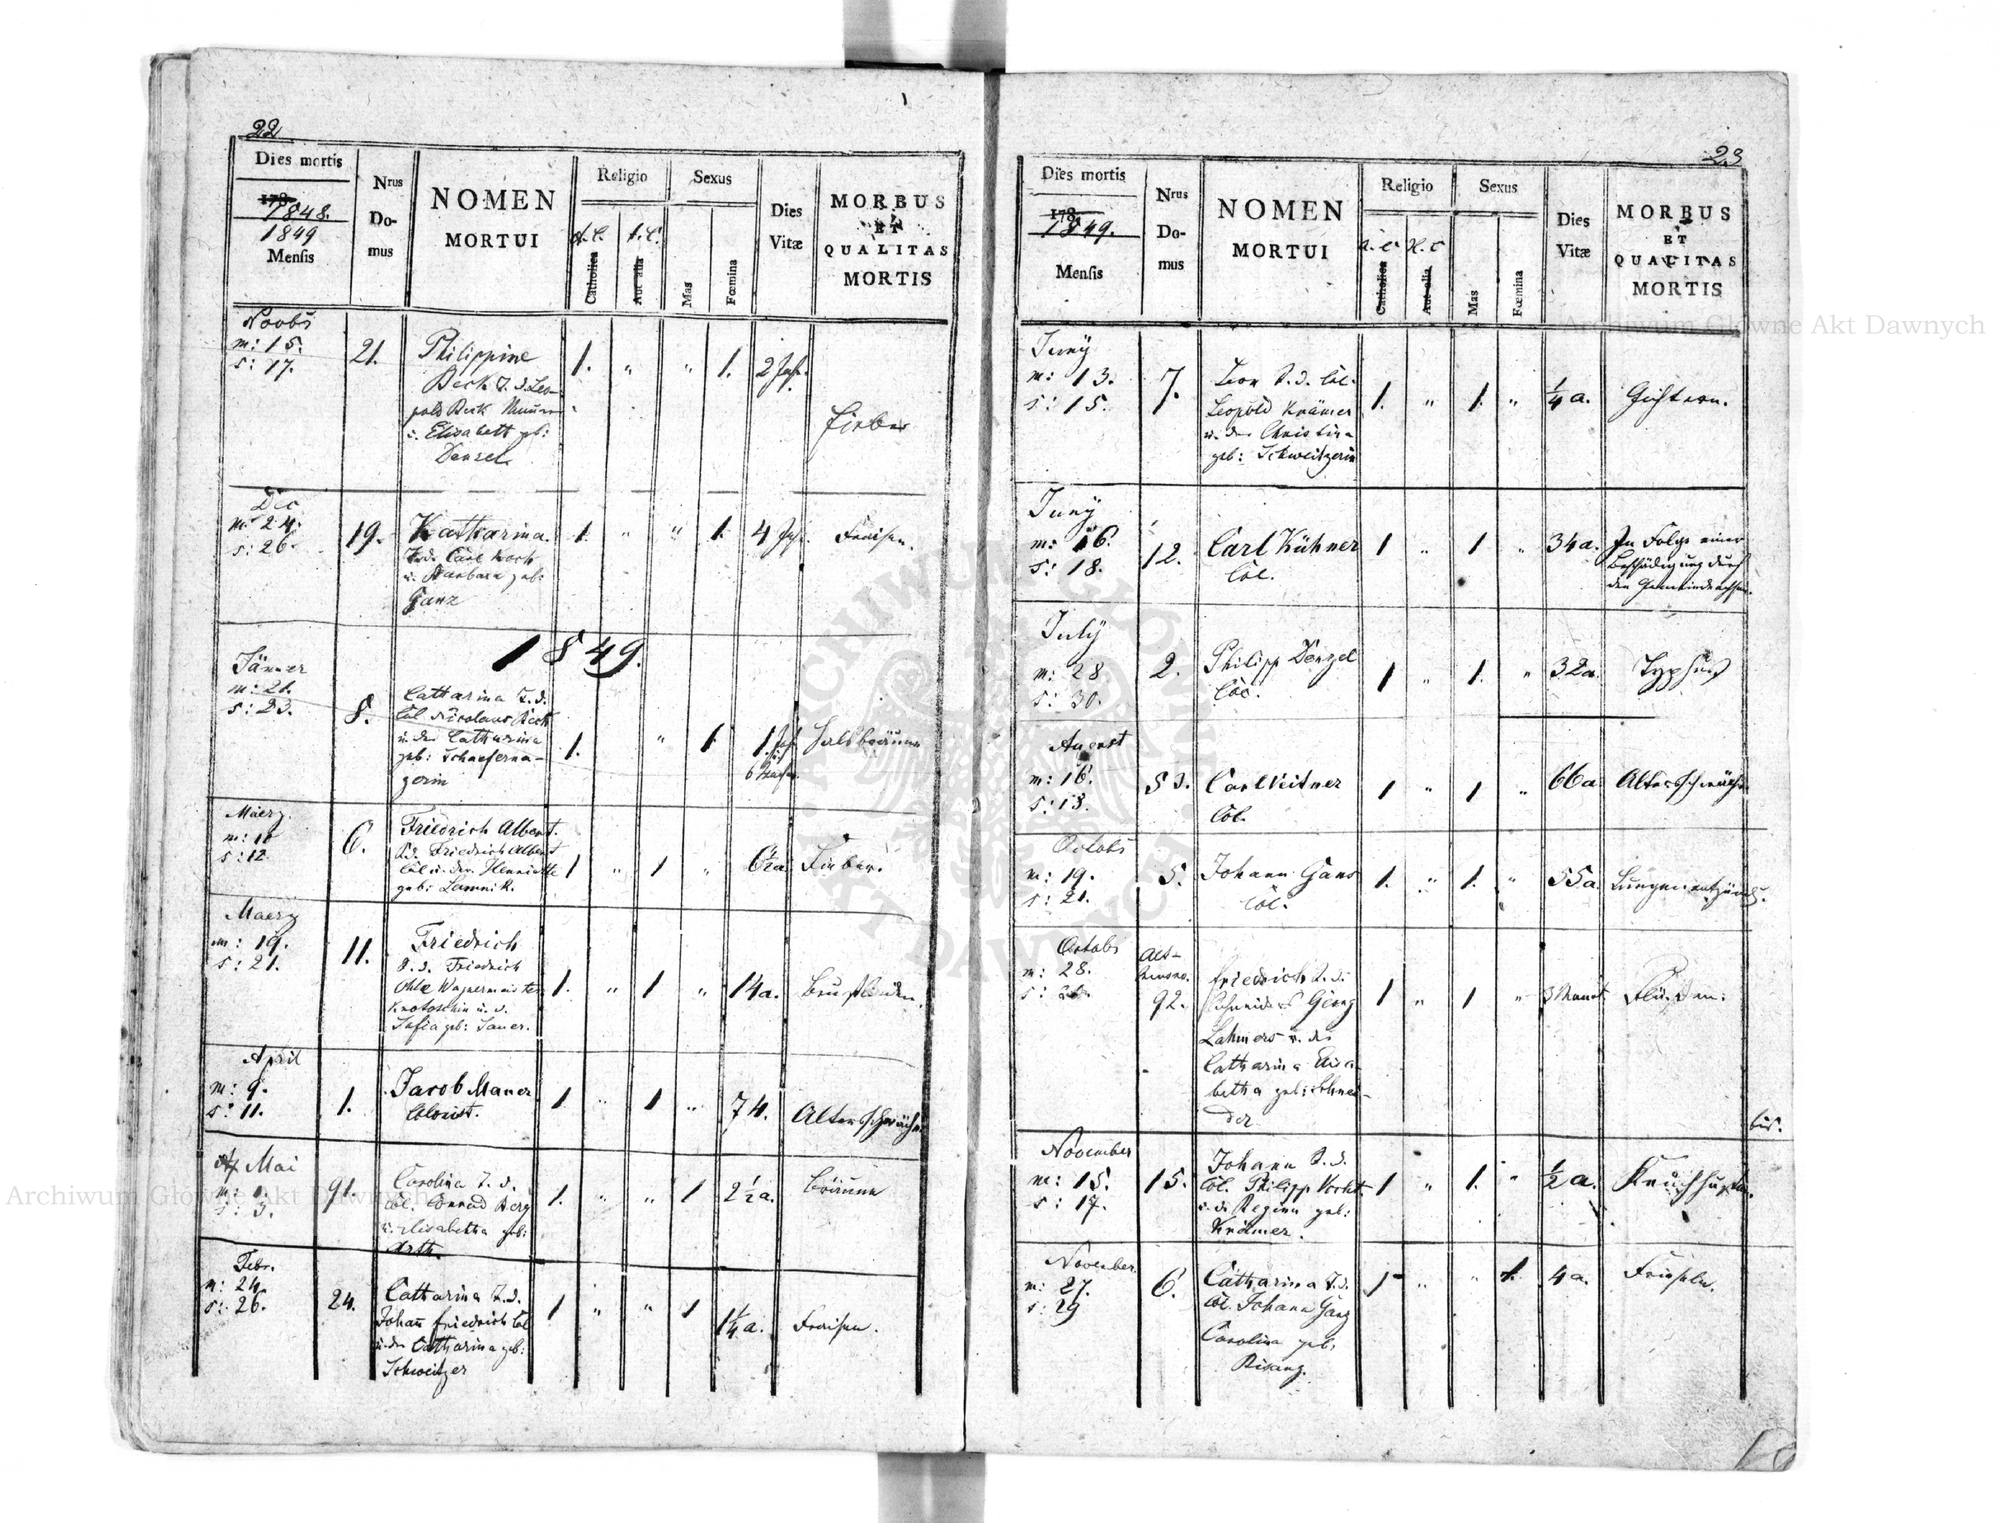 22
Dies mortis
1848.
1849
Mensis
Nrus
Do-
mus
NOMEN
MORTUI
Religio
A.C.
Catholica
H.C.
Aut alia
Sexus
Mas
Fœmina
Dies
Vitæ
MORBUS
ET
QUALITAS
MORTIS
Novbs
m: 15.
s: 17.
21.
Philippine
Beck T. d. Leo-
pold Beck
u. Elisabeth geb:
Denzel
1. " " 1. 2 Jah.
Fieber
Dec
m: 24.
s: 26.
19.
Katharina
T. d. Carl Koch
u. Barbara geb:
Ganz
1. " " 1. 4 Jah.
Fraisen.
1849.
Jänner
m: 21.
s: 23.
8.
Catharina T. d.
Col Nicolaus Beck
u. der Catharina
geb: Schaeferna-
gerin
1. " 1. 1 Jah
6
Halsbräune
Maerz.
m: 10
s: 12.
6.
Friedrich Albert.
S. d. Friedrich Albert
Col u. der Henriette
geb: Lamnik.
1 " 1 " 6½a
Fieber.
Maerz
m: 19.
s: 21.
11.
Friedrich
S. d. Friedrich
Wagnermeister
Krotoschin u. d.
Sofia geb: Sauer.
1. " 1 " 14a.
Brustleiden.
April
m: 9.
s: 11.
1.
Jacob Mauer
Colonist.
1. " 1 " 74.
Altersschwäche
Mai
m: 1.
s: 3.
91.
Carolina T. d.
Col. Conrad Berg
u. Elisabetha geb:
Arth.
1. " " 1 2½a.
Bräune
Febr.
m: 24.
s: 26.
24.
Catharina T. d.
Johann Friedrich Col
u. der Catharina geb:
Schweitzer
1 " " 1 1¼a.
Fraisen.
23
Dies mortis
178
1849.
Mensis
Nrus
Do-
mus
NOMEN
MORTUI
Religio
A. C
Catholica
H. C
Aut alia
Sexus
Mas
Fœmina
Dies
Vitæ
MORBUS
ET
QUALITAS
MORTIS
Juny
m: 13.
s: 15.
7.
Leon S. d. Col.
Leopold Krämer
u. der Christina
geb: Schweitzerin
1. " 1. " ¼a.
Gichtern.
Juny
m: 16.
s: 18.
12.
Carl Kühner
Col.
1 " 1 " 34a.
In Folge einer
Beschädigung durch
den Gemeindeochsen.
July
m: 28.
s: 30.
2.
Philipp Denzel
Col.
1 " 1. " 32a.
Typhus
August
m: 16.
s: 18.
53.
Carl Veitner
Col.
1 " 1 " 66a.
Altersschwäche
Octobs
m: 19.
s: 21.
5.
Johann Gans
Col.
1. " 1. " 55a.
Lungenentzünd.
Octobs
m: 28.
s:
Alt-
92.
Friedrich S. d.
Schneiders Georg
Lahmers u. der
Catharina Elisa
betha geb: Schnei-
der
1 " 1 " 3 Monat
bis.
November
m: 15.
s: 17.
15.
Johann S. d.
Col. Philipp Vocht
u. d. Regina geb:
Krämer.
1 " 1. " ½a.
Keuchhusten.
November.
m: 27.
s: 29
6.
Catharina T. d.
Col. Johann Ganz
Carolina geb.
Bisanz.
1 " " 1. 4a.
Frieseln.
Archiwum Główne Akt Dawnych
Archiwum Główne Akt Dawnych
ARCHIWUM GŁÓWNE AKT DAWNYCH